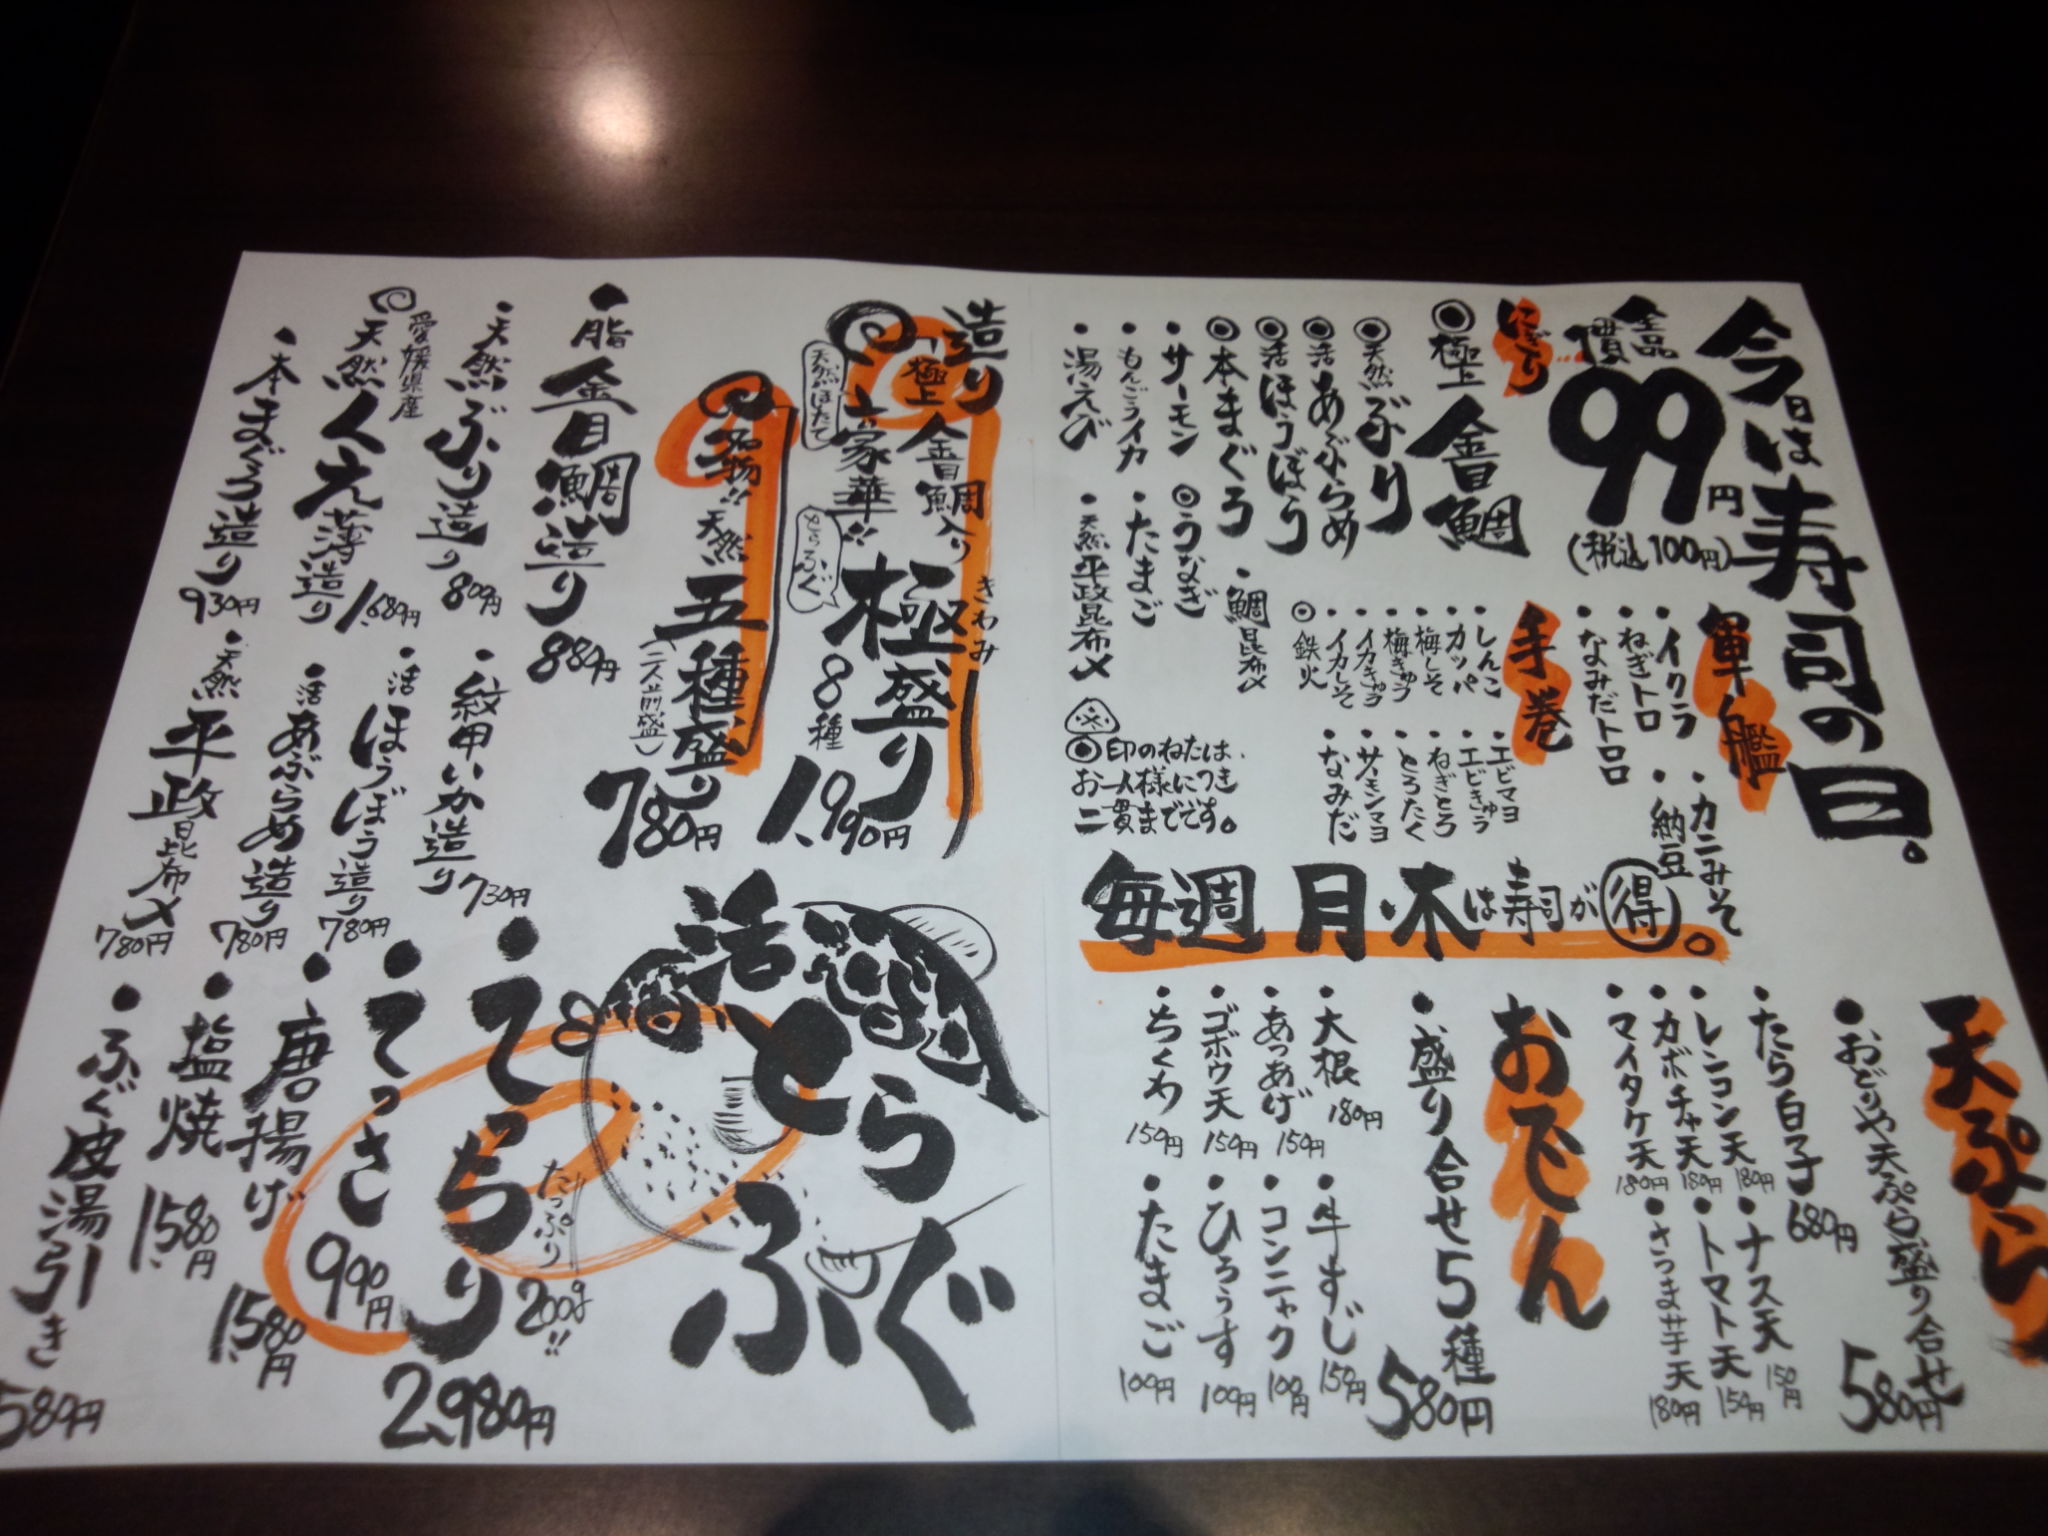 今日は寿司の日。
全品一貫99円
(税込100円)
にぎり
◎極上金目鯛
◎天然ぶり
◎活あぶらめ
◎活ほうぼう
◎本まぐろ
・サーモン
・もんごうイカ
・湯えび
・鯛昆布〆
◎うなぎ
・たまご
・天然平政昆布〆
軍艦
・イクラ
・ねぎトロ
・なみだトロロ
・カニみそ
・納豆
手巻
・しんこ
・カッパ
・梅しそ
・梅きゅう
・イカきゅう
・イカしそ
◎鉄火
・エビマヨ
・エビきゅう
・ねぎとろ
・とろたく
・サーモンマヨ
・なみだ
◎印のねたは、
お一人様につき
二貫までです。
毎週月・木は寿司が得。
天ぷら
・おどりや天ぷら盛り合せ 580円
・たら白子 680円
・レンコン天 180円
・カボチャ天 180円
・マイタケ天 180円
・ナス天 150円
・トマト天 150円
・さつま芋天 180円
おでん
・盛り合せ5種 580円
・大根 180円
・あつあげ 150円
・ゴボウ天 150円
・ちくわ 150円
・牛すじ 150円
・コンニャク 100円
・ひろうす 100円
・たまご 100円
造り
「極上金目鯛入り
豪華!!
天然ほたて
とらふぐ
きわみ
極盛り
8種
1,990円
名物!!天然五種盛り
(二人前盛)
780円
・脂金目鯛造り 880円
・天然ぶり造り 800円
愛媛県産
天然くえ薄造り 1,680円
・本まぐろ造り 930円
・紋甲いか造り 730円
・活ほうぼう造り 780円
・活あぶらめ造り 780円
・天然平政昆布〆 780円
活とらふぐ
・てっちり 2,980円
たっぷり200g!!
・てっさ 990円
・唐揚げ 1,580円
・塩焼 1,580円
・ふぐ皮湯引き 580円